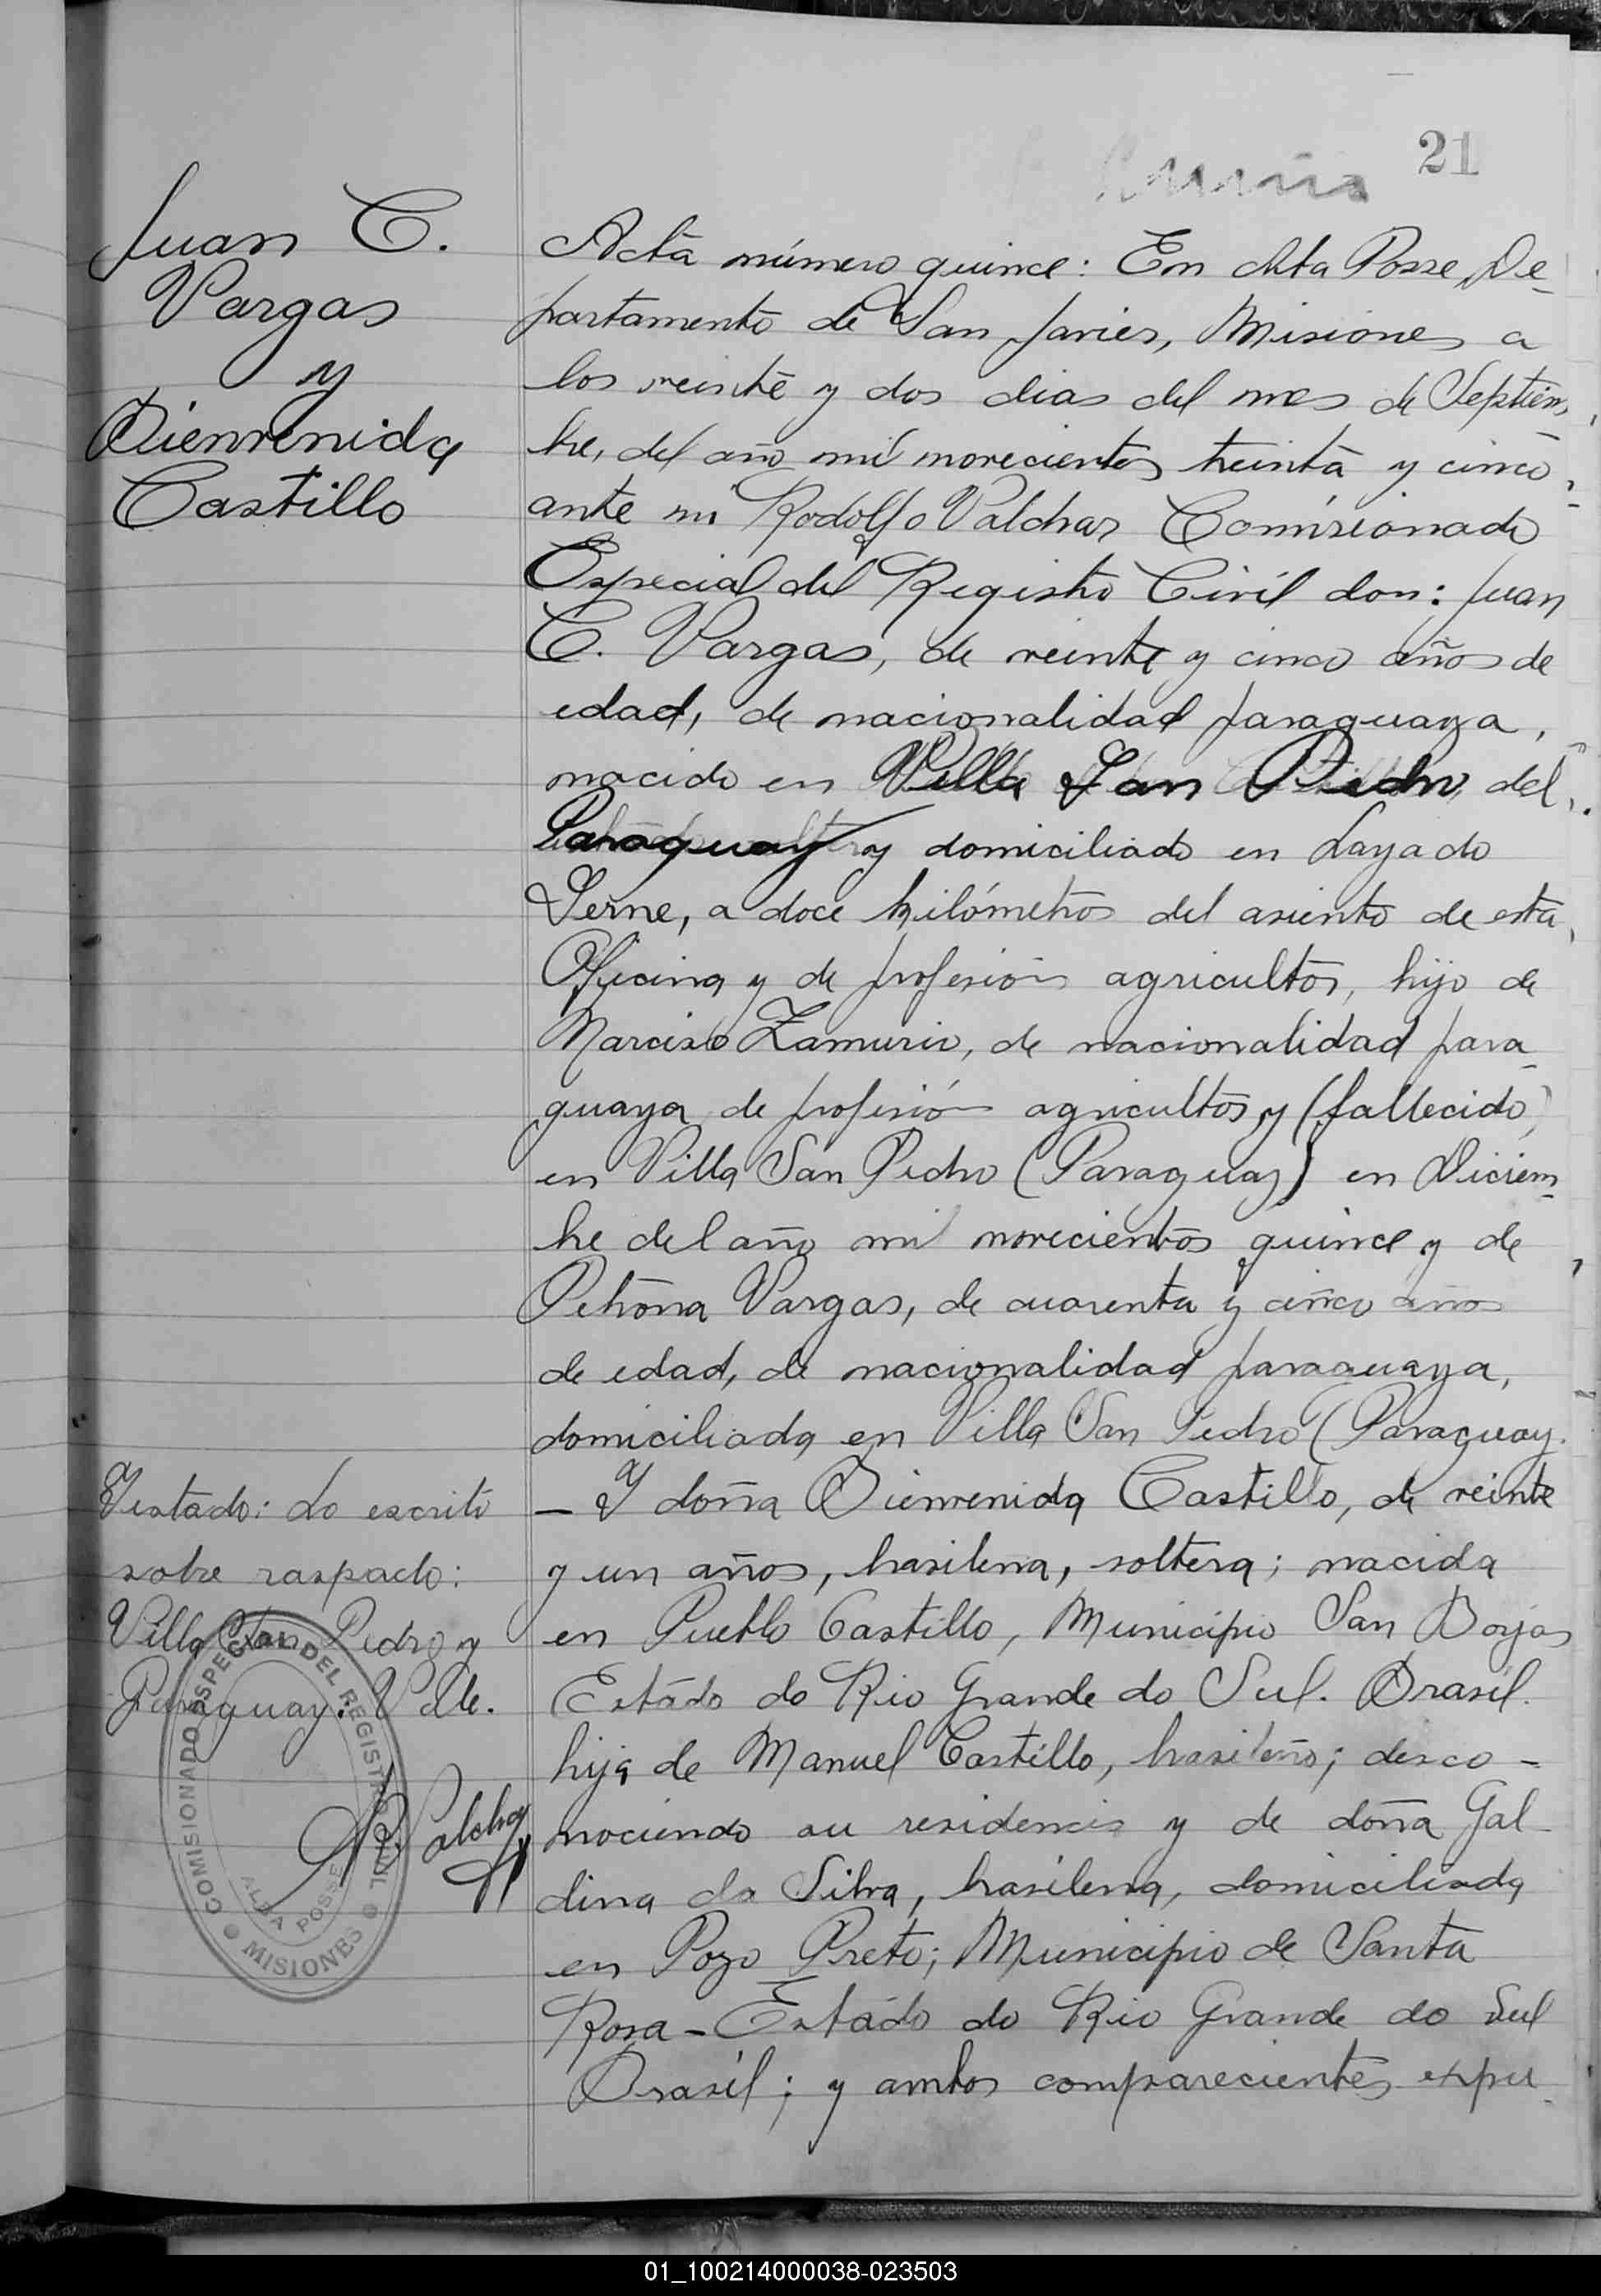 21
Juan C.
Vargas
y
Bienvenida
Castillo
Acta número quince: En Alba Posse, De-
partamento de San Javier, Misiones a
los veinte y dos dias del mes de Septiem-
bre, del año mil novecientos treinta y cinco
ante mi Rodolfo Valchar Comisionado
Especial del Registro Civil don: Juan
C. Vargas, de veinte y cinco años de
edad, de nacionalidad paraguaya,
nacido en Villa San Pedro, del
Paraguay y domiciliado en Layado
a doce kilómetros del asiento de esta
Oficina y de profesión agricultor, hijo de
Narciso Zamurio, de nacionalidad para-
guaya de profesión agricultor, y (fallecido)
en Villa San Pedro (Paraguay) en Diciem-
bre del año mil novecientos quince y de
Petrona Vargas, de cuarenta y cinco años
de edad, de nacionalidad paraguaya,
domiciliada en Villa San Pedro (Paraguay.
— Y doña Bienvenida Castillo, de veinte
y un años, brasilena, soltera; nacida
en Pueblo Castillo, Municipio San Borjas
Estádo do Rio Grande do Sul. Brasil.
hija de Manuel Castillo, brasileño; desco-
nociendo su residencia y de doña Gal-
dina da Silva, brasilena, domiciliada
en Pozo Preto; Municipio de Santa
Rosa - Estádo do Rio Grande do Sul
Brasil; y ambos comparecientes expu-
Testado: Lo escrito
sobre raspado:
Villa San Pedro y
Paraguay: Vale.
R. Valchar
COMISIONADO ESPECIAL DEL REGISTRO CIVIL
ALBA POSSE
MISIONES
01_100214000038-023503